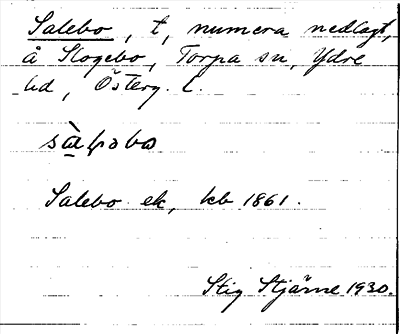 Salebo, t, numera nedlagt,
å Slogebo, Torpa sn, Ydre
hd, Österg. l.
Salebo ek, kb 1861.
Stig Stjärne 1930.